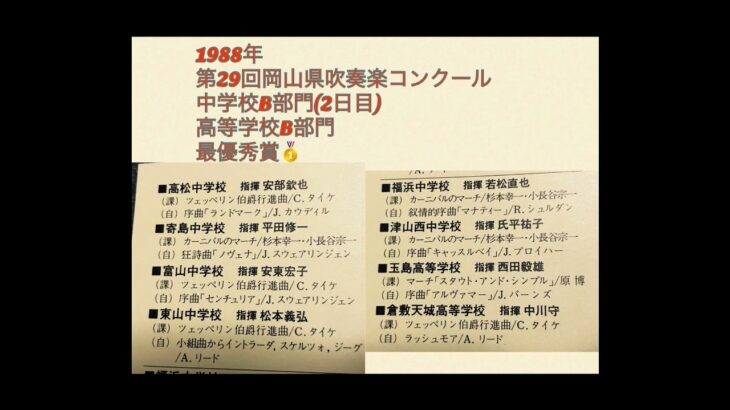 1988年
第29回岡山県吹奏楽コンクール
中学校B部門(2日目)
高等学校B部門
最優秀賞🏅
■高松中学校　指揮 安部欽也
(課) ツェッペリン伯爵行進曲/C. タイケ
(自) 序曲「ランドマーク」/J. カウディル
■寄島中学校　指揮 平田修一
(課) カーニバルのマーチ/杉本幸一・小長谷宗一
(自) 狂詩曲「ノヴェナ」/J. スウェアリンジェン
■富山中学校　指揮 安東宏子
(課) ツェッペリン伯爵行進曲/C. タイケ
(自) 序曲「センチュリア」/J. スウェアリンジェン
■東山中学校　指揮 松本義弘
(課) ツェッペリン伯爵行進曲/C. タイケ
(自) 小組曲からイントラーダ, スケルツォ, ジーグ
/A. リード
■福浜中学校　指揮 若松直也
(課) カーニバルのマーチ/杉本幸一・小長谷宗一
(自) 叙情的序曲「マナティー」/R. シェルダン
■津山西中学校　指揮 氏平祐子
(課) カーニバルのマーチ/杉本幸一・小長谷宗一
(自) 序曲「キャッスルベイ」/J. プロイハー
■玉島高等学校　指揮 西田毅雄
(課) マーチ「スタウト・アンド・シンプル」/原 博
(自) 序曲「アルヴァマー」/J. バーンズ
■倉敷天城高等学校　指揮 中川守
(課) ツェッペリン伯爵行進曲/C. タイケ
(自) ラッシュモア/A. リード